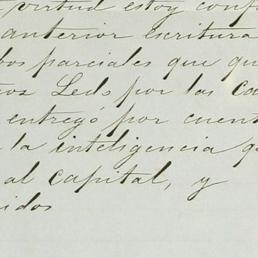 virtud estoy conf
anterior escritura
bos parciales que qu
Leds por las ca
entregó por cuent
la inteligencia q
al capital, y
idos